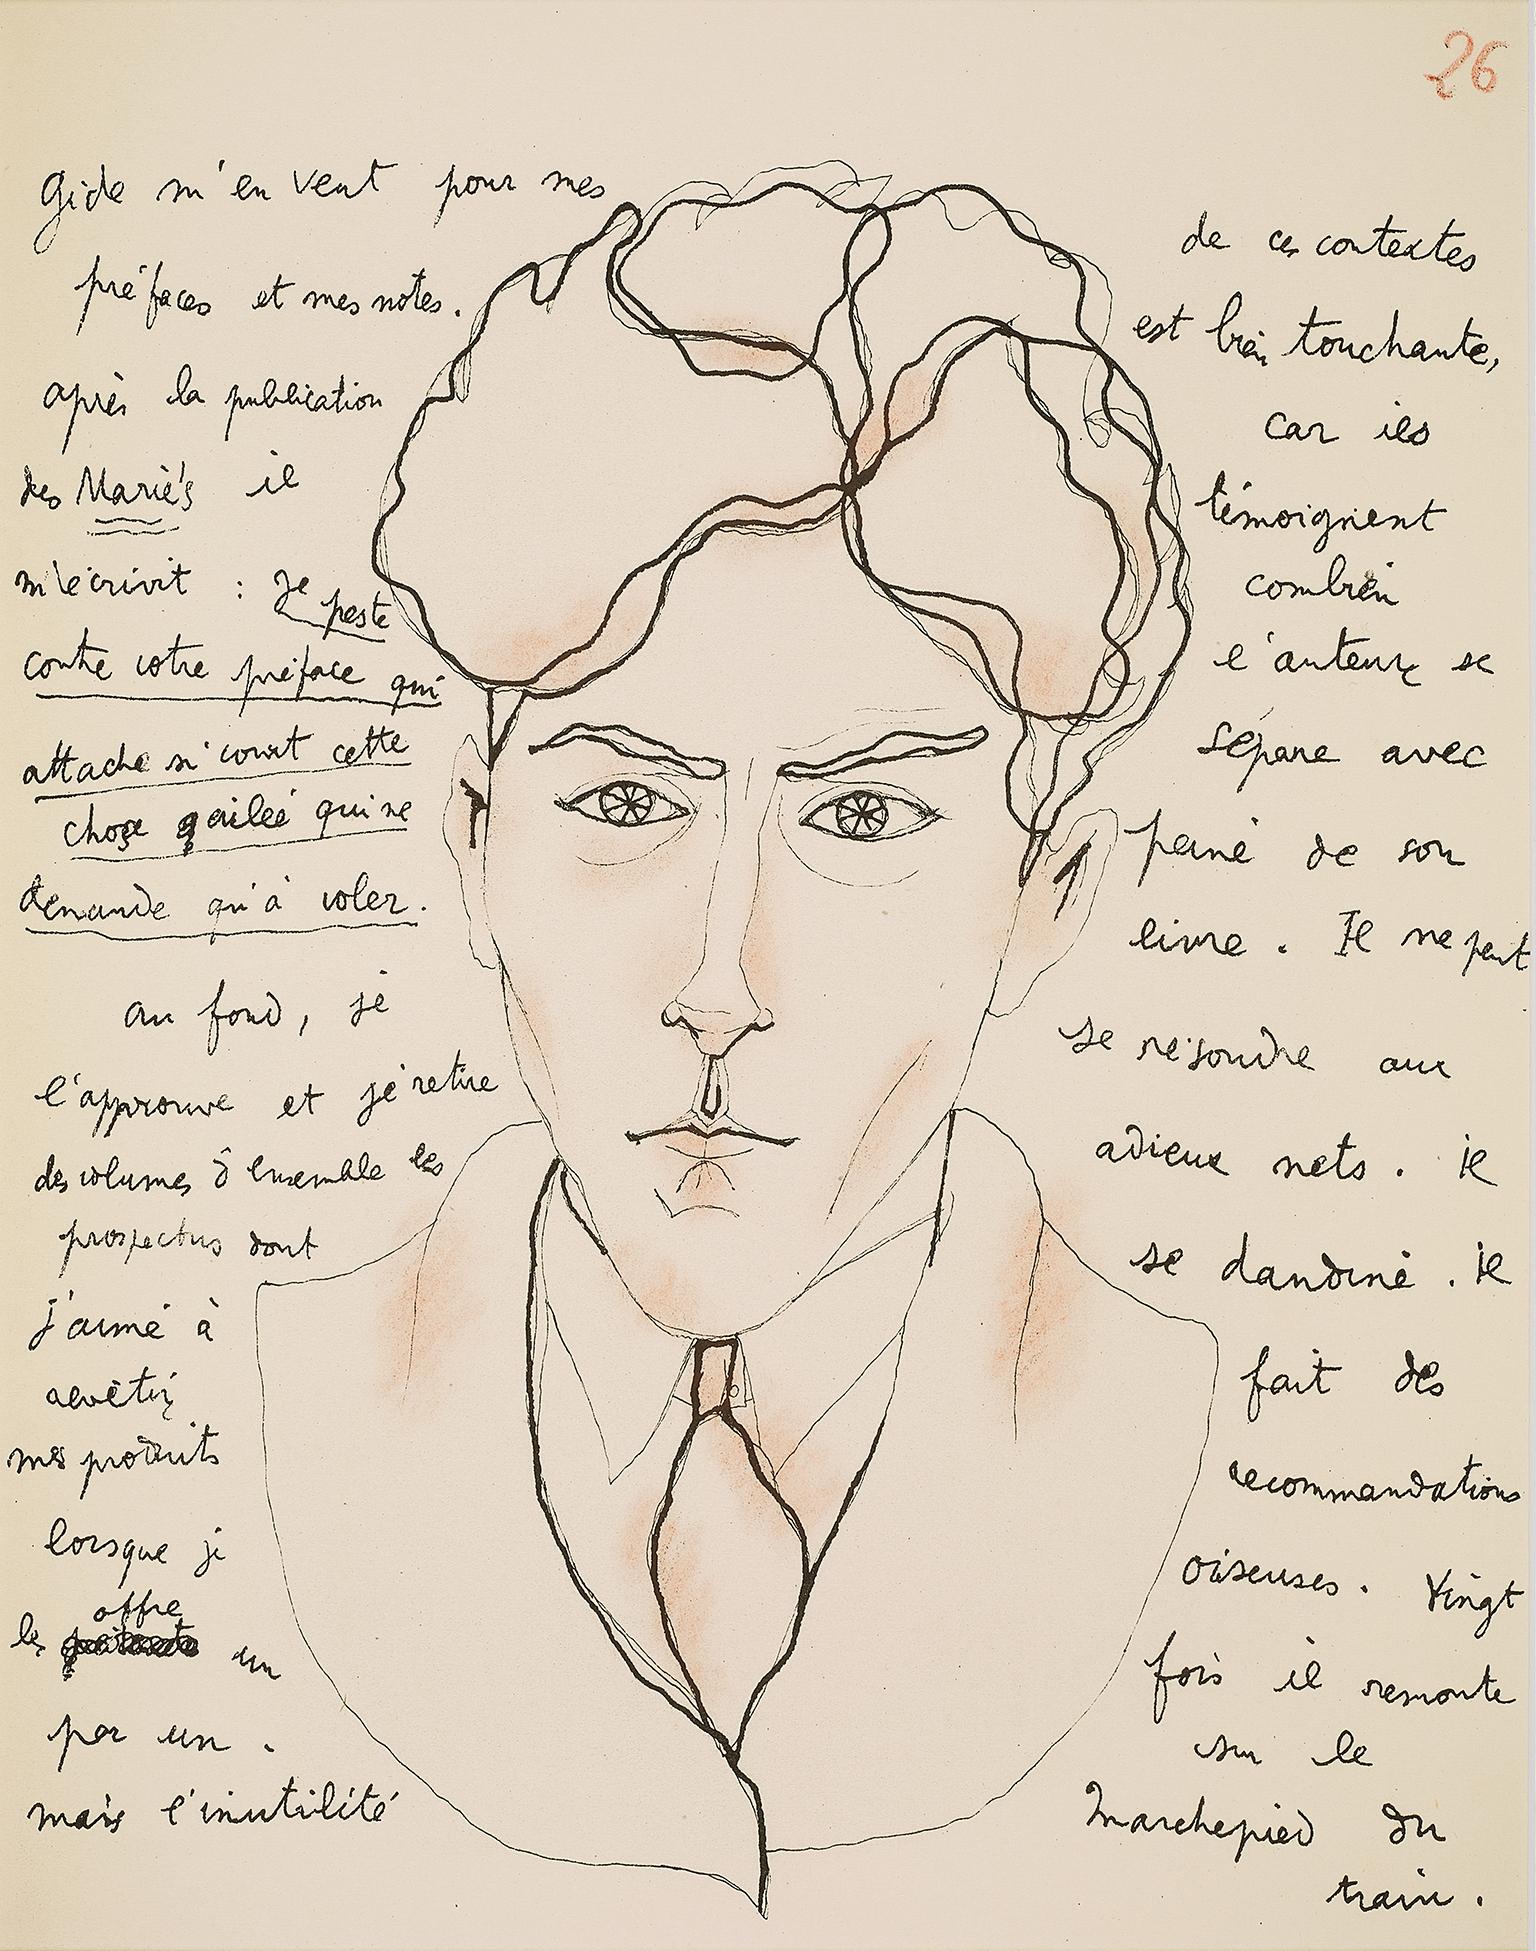 26
Gide m'en veut pour mes
préfaces et mes notes.
après la publication
des Mariés il
m'écrivit : je peste
contre votre préface qui
attache si court cette
chose ailée qui ne
demande qu'à voler.
au fond, je
l'approuve et je retire
des volumes d'ensemble les
prospectus dont
j'aime à
revêtir
mes produits
lorsque je
offre
les un
par un.
mais l'inutilité
de ces contextes
est bien touchante,
car ils
témoignent
combien
l'auteur se
sépare avec
peine de son
livre. Il ne peut
se résoudre aux
adieux nets. il
se dandine. il
fait des
recommandations
oiseuses. Vingt
fois il remonte
sur le
marchepied du
train.